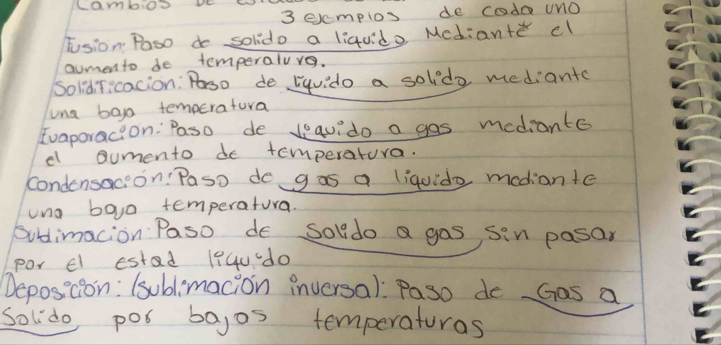 Cambios de
3 ejemplos de cada uno
Fusion: Paso de solido a liquido Mediante el
aumento de temperatura.
Solidificacion: Paso de liquido a solido mediante
una baja temperatura
Evaporacion: Paso de liquido a gas mediante
el aumento de temperatura.
Condensación: Paso de gas a liquido mediante
una baja temperatura.
Sublimación: Paso de solido a gas sin pasar
por el estad liquido
Deposicion: (sublimación inversa): Paso de Gas a
Solido por bajas temperaturas